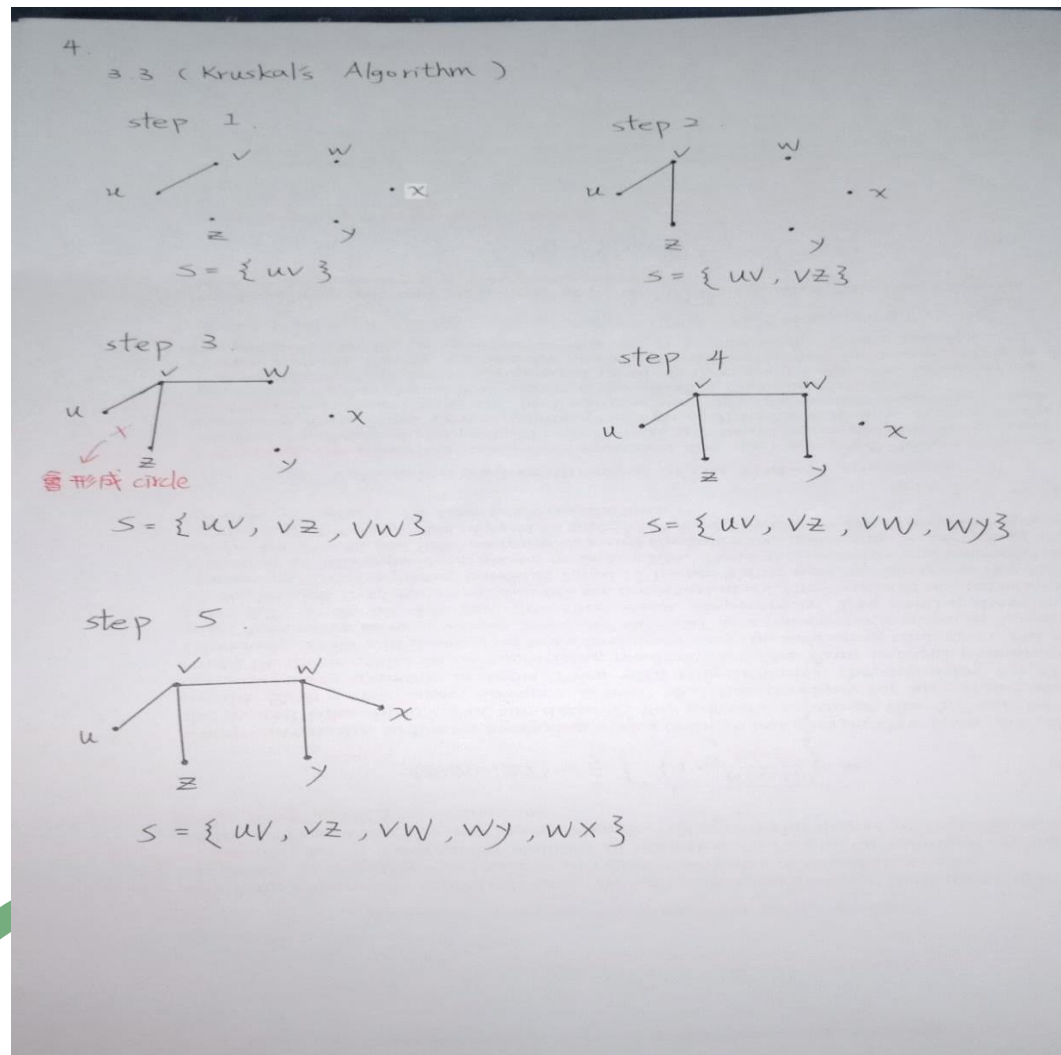 4.
3.3 ( Kruskal's Algorithm )
step 1.
v
w
u
x
z
y
S = { uv }
step 2.
v
w
u
x
z
y
S = { uv, vz }
step 3.
v
w
u
x
x
z
y
會形成 circle
S = { uv, vz, vw }
step 4
v
w
u
x
z
y
S = { uv, vz, vw, wy }
step 5.
v
w
u
x
z
y
S = { uv, vz, vw, wy, wx }